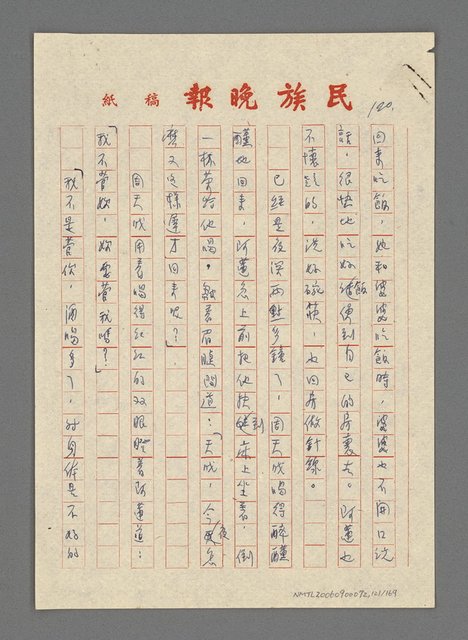 民族晚報 稿紙
120.
回來吃飯，她和婆婆吃飯時，婆婆也不開口說
話，很快地吃好飯便到自己的房裏去。阿蓮也
不懷疑的，洗好碗筷，也回房做針線。
已經是夜深兩點多鐘了，周天成喝得醉醺
醺地回來，阿蓮急上前把他扶到床上坐着，倒
一杯茶給他喝，皺着眉頭問道：「天成，今夜怎
麼又這樣遲才回來呢？」
周天成用着喝得紅紅的双眼瞪着阿蓮道：
「我不管妳，妳要管我嗎？」
「我不是管你，酒喝多了，對身体是不好的
NMTL20060900072,121/169